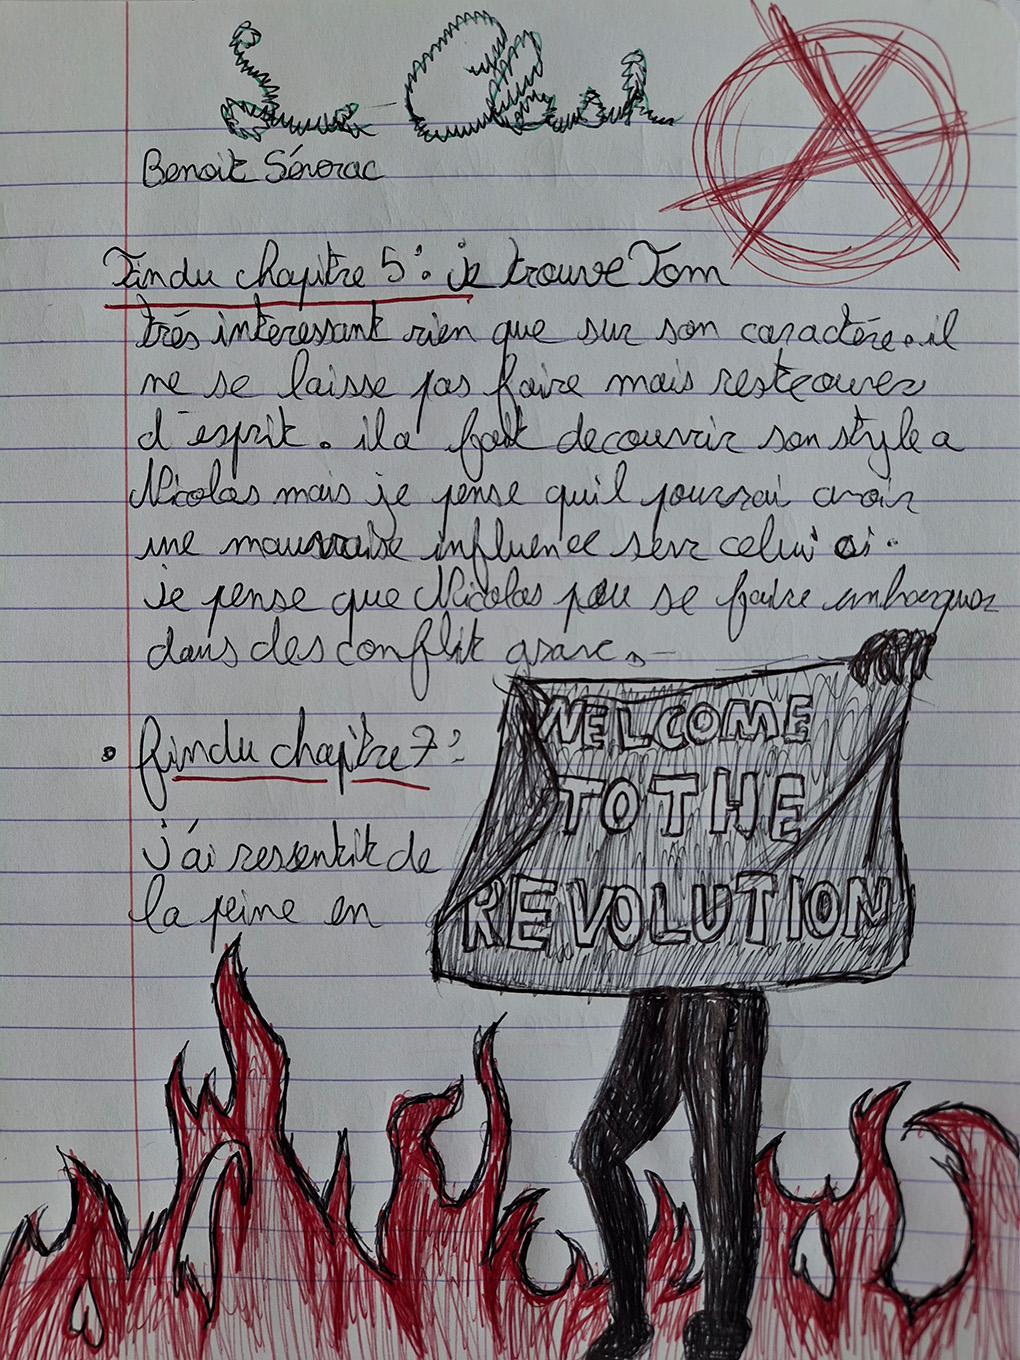 Le Chat
Benoit Séverac
Fin du chapitre 5 : je trouve Tom
très interessant rien que sur son caractère. il
ne se laisse pas faire mais reste ouver
d'esprit. il a fait decouvrir son style a
Nicolas mais je pense quil pourrai avoir
une mauvaise influence sur celui ci.
je pense que Nicolas peu se faire embarquer
dans des conflit grave.
• fin du chapitre 7 :
j'ai ressentit de
la peine en
WELCOME
TO THE
REVOLUTION